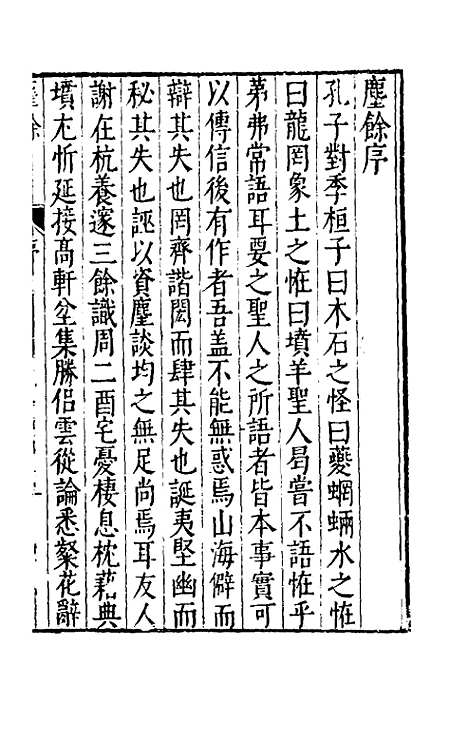 塵餘序
孔子對季桓子曰木石之怪曰夔蝄蜽水之恠
曰龍罔象土之恠曰墳羊聖人曷嘗不語恠乎
苐弗常語耳要之聖人之所語者皆本事實可
以傳信後有作者吾盖不能無惑焉山海僻而
辯其失也罔齊諧閎而肆其失也誕夷堅幽而
秘其失也誣以資塵談均之無足尚焉耳友人
謝在杭養邃三餘識周二酉宅憂棲息枕藉典
墳尤忻延接髙軒坌集勝侣雲從論悉粲花辭
塵餘 序